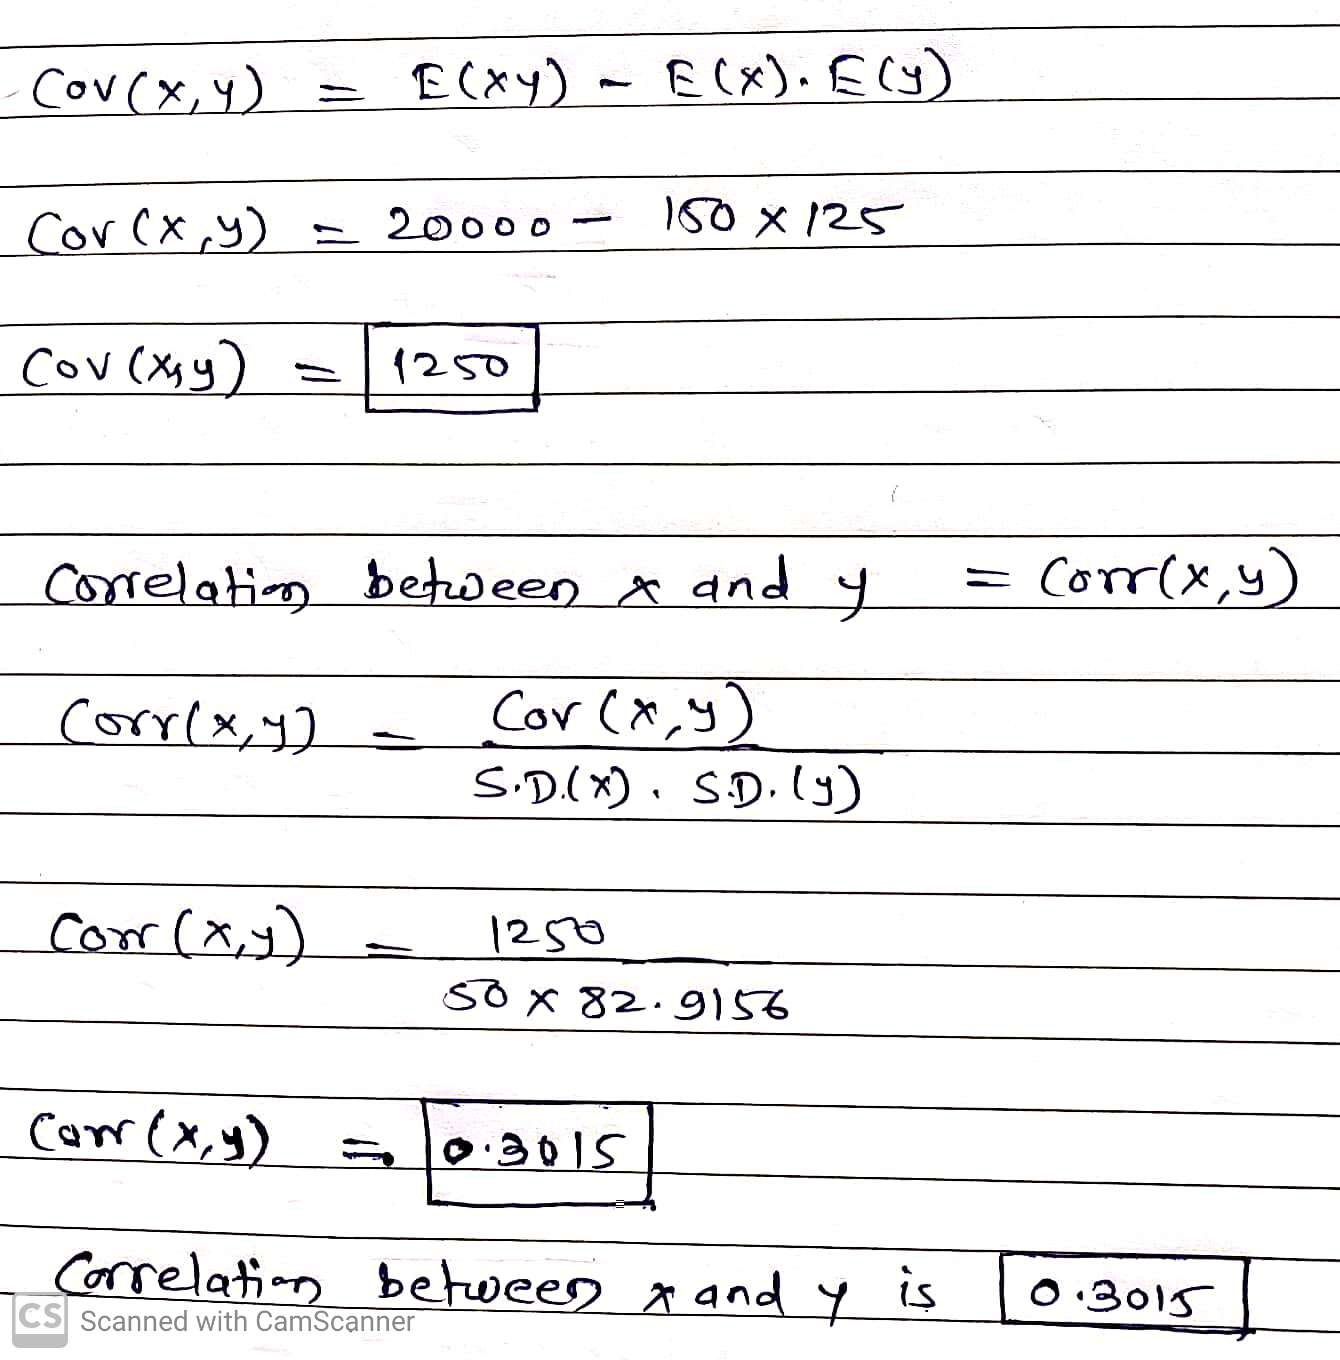 Cov(x,y) = E(xy) - E(x).E(y)
Cov(x,y) = 20000 - 150 × 125
Cov(x,y) = 1250
Correlation between x and y = Corr(x,y)
Corr(x,y) = Cov(x,y)
S.D.(x) . S.D.(y)
Corr(x,y) = 1250
50 × 82.9156
Corr(x,y) = 0.3015
Correlation between x and y is 0.3015
CS Scanned with CamScanner